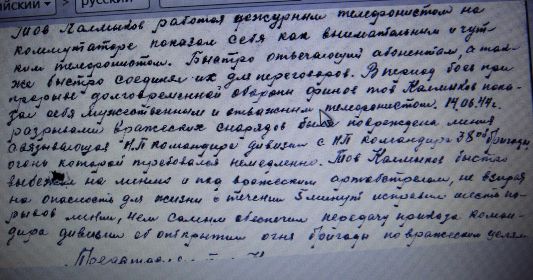 русский
Тов Калмыков работая дежурным телефонистом на
коммутаторе показал себя как внимательным и чут-
ким телефонистом. Быстро отвечающий абонентам, а так-
же быстро соединял их для переговоров. В период боев при
прорыве долговременной обороны финов тов Калмыков пока-
зал себя мужественным и отважным телефонистом. 14.06.44г.
разрывами вражеских снарядов была повреждена линия
связывающая НП командира дивизии с НП командира 38ой бригады,
огонь которой требовался немедленно. Тов Калмыков быстро
выбежал на линию и под вражеским артобстрелом, не взирая
на опасность для жизни в течении 5 минут исправил шесть по-
рывов линии, чем самым обеспечил передачу приказа коман-
дира дивизии об открытии огня бригады по вражеским целям